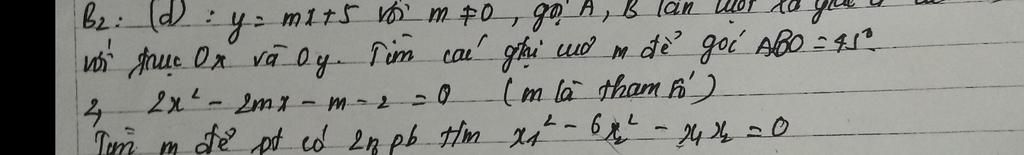 B2: (d) : y = mx+5 với m ≠ 0, gọi A, B lần lượt
với trục Ox và Oy. Tìm các giá trị của m để góc ABO = 45°
2, 2x² - 2mx - m - 2 = 0 (m là tham số)
Tìm m để pt có 2n pb t/m x1² - 6x2² - x1x2 = 0